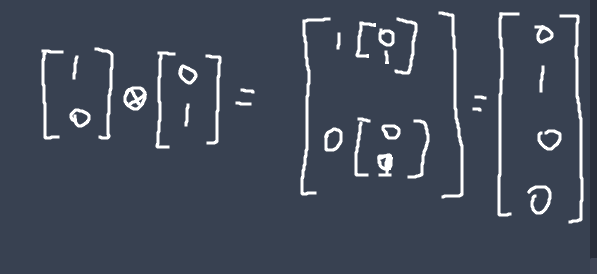 [1 0] ⊗ [0 1] = [1 [0 1] 0 [0 1]] = [0 1 0 0]